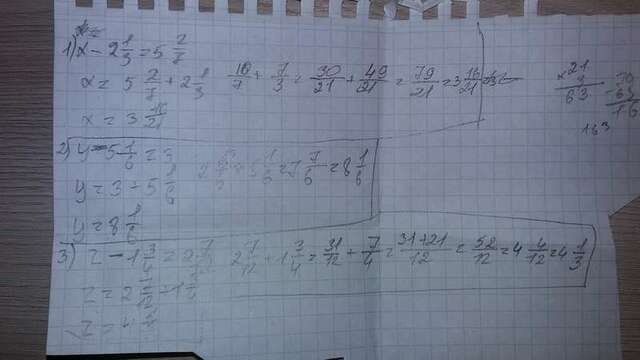 1) x - 2 1/3 = 5 2/7
x = 5 2/7 + 2 1/3 10/7 + 7/3 = 30/21 + 49/21 = 79/21 = 3 16/21
x = 3 16/21
21
3
63
79
63
16
2) y - 5 1/6 = 3
y = 3 + 5 1/6 = 7 7/6 = 8 1/6
y = 8 1/6
3) z - 1 3/4 = 2 7/12 2 7/12 + 1 3/4 = 31/12 + 7/4 = 31+21/12 = 52/12 = 4 4/12 = 4 1/3
z = 2 7/12
z = 4